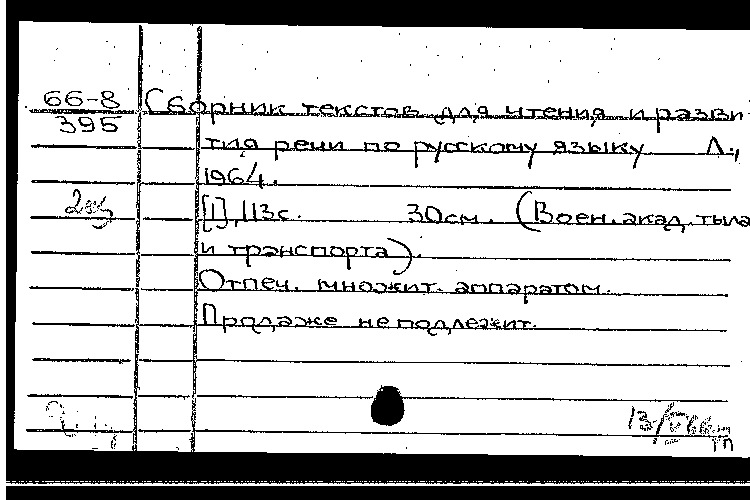 66-8 Сборник текстов для чтения и разви-
395
тия речи по русскому языку Л.,
1964.
2экз [1], 113с. 30см. (Воен. акад. тыла
и транспорта).
Отпеч. множит. аппаратом.
Продаже не подлежит.
13/V 66г
тп